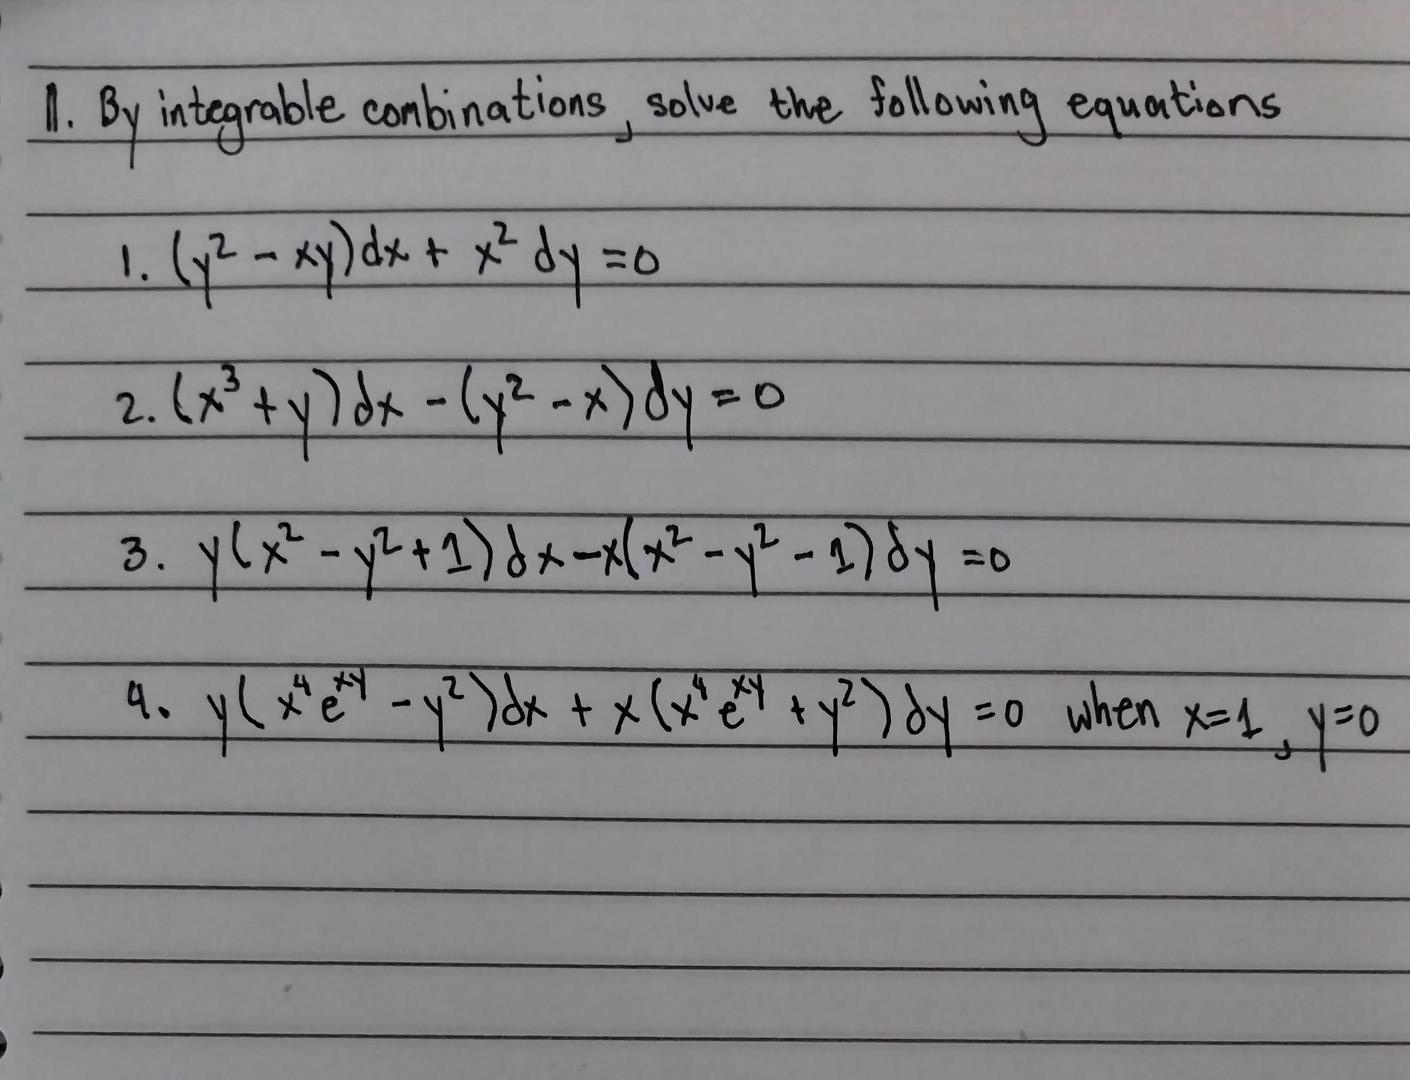 II. By integrable combinations, solve the following equations
1. (y² - xy)dx + x² dy = 0
2. (x³ + y)dx - (y² - x)dy = 0
3. y(x² - y² + 1)dx - x(x² - y² - 1)dy = 0
4. y(x⁴e^xy - y²)dx + x(x⁴e^xy + y²)dy = 0 when x=1, y=0